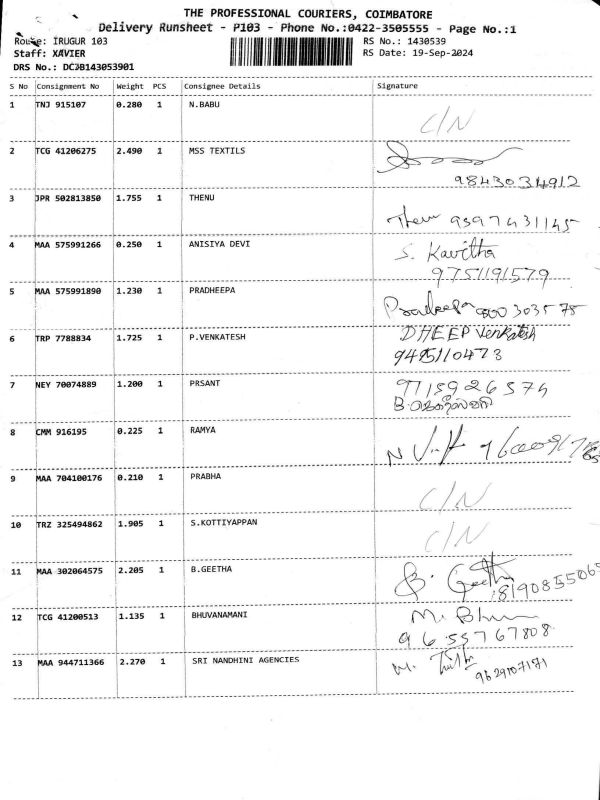 THE PROFESSIONAL COURIERS, COIMBATORE
Delivery Runsheet - P103 - Phone No.:0422-3505555 - Page No.:1
Route: IRUGUR 103
RS No.: 1430539
Staff: XAVIER
RS Date: 19-Sep-2024
DRS No.: DCJB143053901
S No Consignment No Weight PCS Consignee Details Signature
1 TNJ 915107 0.280 1 N.BABU
C/N
2 TCG 41206275 2.490 1 MSS TEXTILS
9843034912
3 JPR 502813850 1.755 1 THENU
Thenu 9597431145
4 MAA 575991266 0.250 1 ANISIYA DEVI S. Kavitha
9751191579
5 MAA 575991890 1.230 1 PRADHEEPA
Pradeepa
6 TRP 7788834 1.725 1 P.VENKATESH DHEEP Venkatesh
9495110473
7 NEY 70074889 1.200 1 PRSANT 9715926574
8 CMM 916195 0.225 1 RAMYA
9 MAA 704100176 0.210 1 PRABHA
C/N
10 TRZ 325494862 1.905 1 S.KOTTIYAPPAN C/N
11 MAA 302064575 2.205 1 B.GEETHA B. Geetha
8190855065
12 TCG 41200513 1.135 1 BHUVANAMANI M. Bhu
9655767808
13 MAA 944711366 2.270 1 SRI NANDHINI AGENCIES M.
9629107171